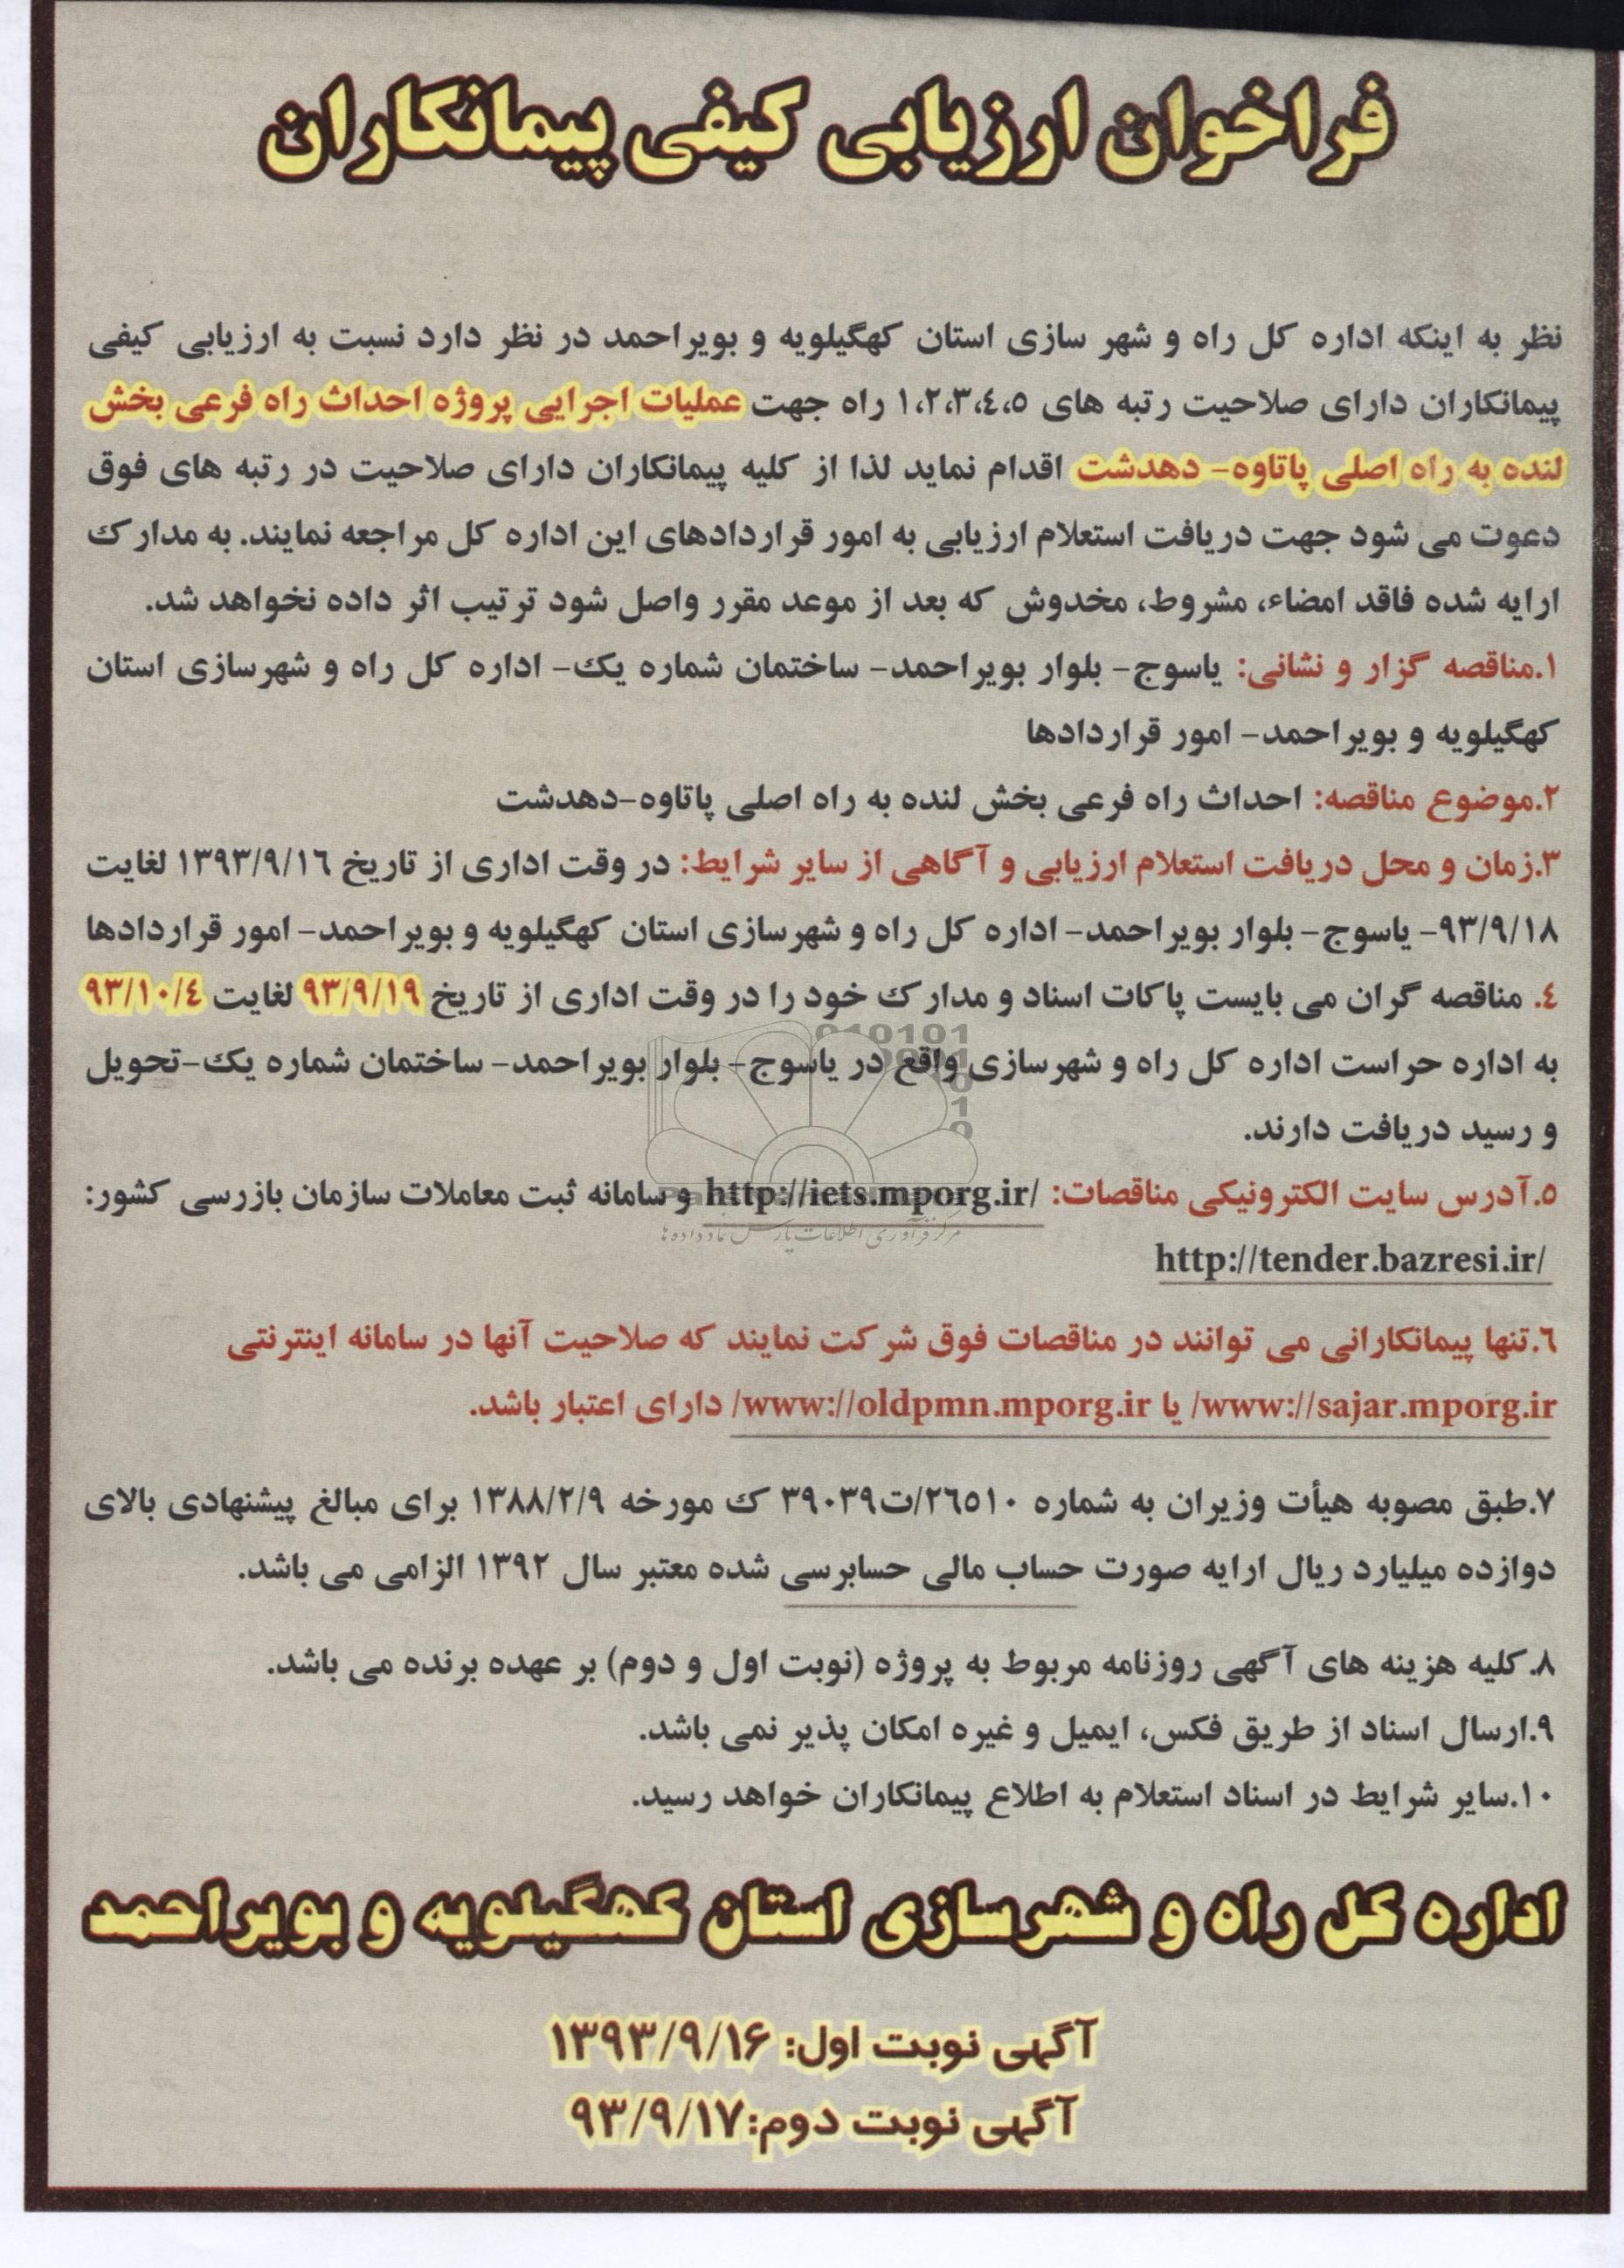 فراخوان ارزیابی کیفی پیمانکاران
نظر به اینکه اداره کل راه و شهر سازی استان کهگیلویه و بویراحمد در نظر دارد نسبت به ارزیابی کیفی
پیمانکاران دارای صلاحیت رتبه های ۱،۲،۳،٤،٥ راه جهت عملیات اجرایی پروژه احداث راه فرعی بخش
لنده به راه اصلی پاتاوه- دهدشت اقدام نماید لذا از کلیه پیمانکاران دارای صلاحیت در رتبه های فوق
دعوت می شود جهت دریافت استعلام ارزیابی به امور قراردادهای این اداره کل مراجعه نمایند. به مدارک
ارایه شده فاقد امضاء، مشروط، مخدوش که بعد از موعد مقرر واصل شود ترتیب اثر داده نخواهد شد.
۱.مناقصه گزار و نشانی: یاسوج- بلوار بویراحمد- ساختمان شماره یک- اداره کل راه و شهرسازی استان
کهگیلویه و بویراحمد- امور قراردادها
۲.موضوع مناقصه: احداث راه فرعی بخش لنده به راه اصلی پاتاوه-دهدشت
۳.زمان و محل دریافت استعلام ارزیابی و آگاهی از سایر شرایط: در وقت اداری از تاریخ ۱۳۹۳/۹/۱٦ لغایت
۹۳/۹/۱۸- یاسوج- بلوار بویراحمد- اداره کل راه و شهرسازی استان کهگیلویه و بویراحمد- امور قراردادها
٤. مناقصه گران می بایست پاکات اسناد و مدارک خود را در وقت اداری از تاریخ ۹۳/۹/۱۹ لغایت ۹۳/۱۰/٤
به اداره حراست اداره کل راه و شهرسازی واقع در یاسوج- بلوار بویراحمد- ساختمان شماره یک-تحویل
و رسید دریافت دارند.
٥.آدرس سایت الکترونیکی مناقصات: http://iets.mporg.ir/ و سامانه ثبت معاملات سازمان بازرسی کشور:
http://tender.bazresi.ir/
٦.تنها پیمانکارانی می توانند در مناقصات فوق شرکت نمایند که صلاحیت آنها در سامانه اینترنتی
/www://sajar.mporg.ir یا /www://oldpmn.mporg.ir دارای اعتبار باشد.
۷.طبق مصوبه هیأت وزیران به شماره ۲٦٥۱۰/ت۳۹۰۳۹ ک مورخه ۱۳۸۸/۲/۹ برای مبالغ پیشنهادی بالای
دوازده میلیارد ریال ارایه صورت حساب مالی حسابرسی شده معتبر سال ۱۳۹۲ الزامی می باشد.
۸.کلیه هزینه های آگهی روزنامه مربوط به پروژه (نوبت اول و دوم) بر عهده برنده می باشد.
۹.ارسال اسناد از طریق فکس، ایمیل و غیره امکان پذیر نمی باشد.
۱۰.سایر شرایط در اسناد استعلام به اطلاع پیمانکاران خواهد رسید.
اداره کل راه و شهرسازی استان کهگیلویه و بویراحمد
آگهی نوبت اول: ۱۳۹۳/۹/۱۶
آگهی نوبت دوم:۹۳/۹/۱۷